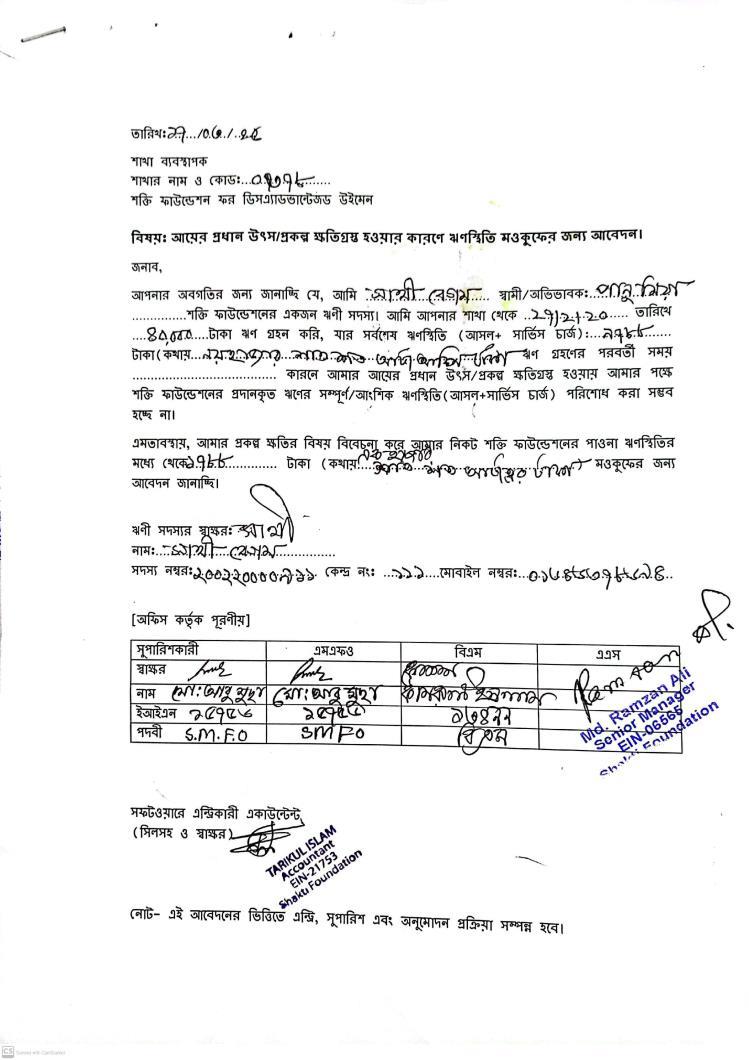 তারিখঃ২৭.../০৫/..২৫
শাখা ব্যবস্থাপক
শাখার নাম ও কোডঃ...০৭৩৭৮.......
শক্তি ফাউন্ডেশন ফর ডিসএ্যাডভান্টেজড উইমেন
বিষয়ঃ আয়ের প্রধান উৎস/প্রকল্প ক্ষতিগ্রস্ত হওয়ার কারণে ঋণস্থিতি মওকুফের জন্য আবেদন।
জনাব,
আপনার অবগতির জন্য জানাচ্ছি যে, আমি ...সাথী বেগম..... স্বামী/অভিভাবক:......পান্নু মিয়া
................শক্তি ফাউন্ডেশনের একজন ঋণী সদস্য। আমি আপনার শাখা থেকে ..২৭/২/২০..... তারিখে
....৪০,০০০....টাকা ঋণ গ্রহন করি, যার সর্বশেষ ঋণস্থিতি (আসল+ সার্ভিস চার্জ):...৯৭৮৮......
টাকা (কথায়...নয় হাজার সাত শত আট আশি টাকা ঋণ গ্রহণের পরবর্তী সময়
................................. কারনে আমার আয়ের প্রধান উৎস/প্রকল্প ক্ষতিগ্রস্ত হওয়ায় আমার পক্ষে
শক্তি ফাউন্ডেশনের প্রদানকৃত ঋণের সম্পূর্ণ/আংশিক ঋণস্থিতি(আসল+সার্ভিস চার্জ) পরিশোধ করা সম্ভব
হচ্ছে না।
এমতাবস্থায়, আমার প্রকল্প ক্ষতির বিষয় বিবেচনা করে আমার নিকট শক্তি ফাউন্ডেশনের পাওনা ঋণস্থিতির
মধ্যে থেকে৯৭৮৮.............. টাকা (কথায়...নয় হাজার সাত শত টাকা মওকুফের জন্য
আবেদন জানাচ্ছি।
ঋণী সদস্যর স্বাক্ষর: সাথী
নাম:...সাথী বেগম..............
সদস্য নম্বর: কেন্দ্র নং: ...১১১....মোবাইল নম্বর:..
[অফিস কর্তৃক পূরণীয়]
সুপারিশকারী এমএফও বিএম এএস
স্বাক্ষর
নাম মো: আবু মুছা মো: আবু মুছা Ramzan
ইআইএন ১৬৪৯৯
পদবী S.M.F.O SMFO বি এম
Md. Ramzan Ali
Senior Manager
EIN-06565
Shakti Foundation
সফটওয়ারে এন্ট্রিকারী একাউন্টেন্ট
(সিলসহ ও স্বাক্ষর)
TARIKUL ISLAM
Accountant
EIN-21753
Shakti Foundation
নোট- এই আবেদনের ভিত্তিতে এন্ট্রি, সুপারিশ এবং অনুমোদন প্রক্রিয়া সম্পন্ন হবে।
CS Scanned with CamScanner